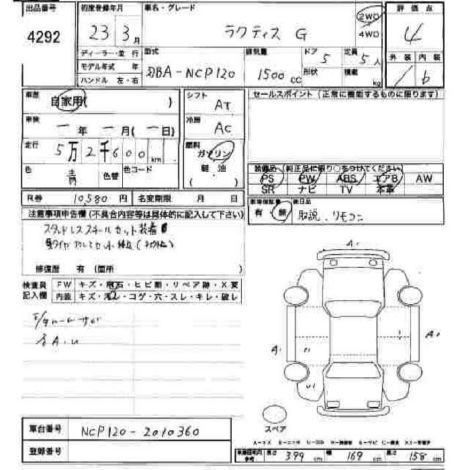 出品番号 初度登録年月 車名・グレード 評価点
4292 23年 3月 ラクティス G 2WD 4WD 4
ディーラー・並行 型式 排気量 ドア 定員 外装 内装
モデル年式 年 DBA-NCP120 1500cc 5 5人 b
ハンドル 左・右 形状 積載 kg
車歴 自家用( ) シフト AT セールスポイント (正常に機能するものに限ります)
車検 ー年 ー月 (ー日) 冷房 AC
走行 5万2千600km 燃料 ガソリン 軽油
色 青 色替 色コード 装備品(純正品に限り○をつけてください)
PS PW ABS エアB AW
SR ナビ TV 本革
R券 10580円 名変期限 月 日 新車保証書 有・無 後日品 取説、リモコン
注意事項申告欄(不具合内容等は具体的に記入して下さい)
修復歴 有(箇所 )
検査員記入欄 FW キズ・飛石・ヒビ割・リペア跡・X要
内装 キズ・汚レ・コゲ・穴・スレ・キレ・破レ
A1
A1 A1
スペア
車台番号 NCP120-2010360
登録番号
長さ 399cm 幅 169cm 高さ 158cm